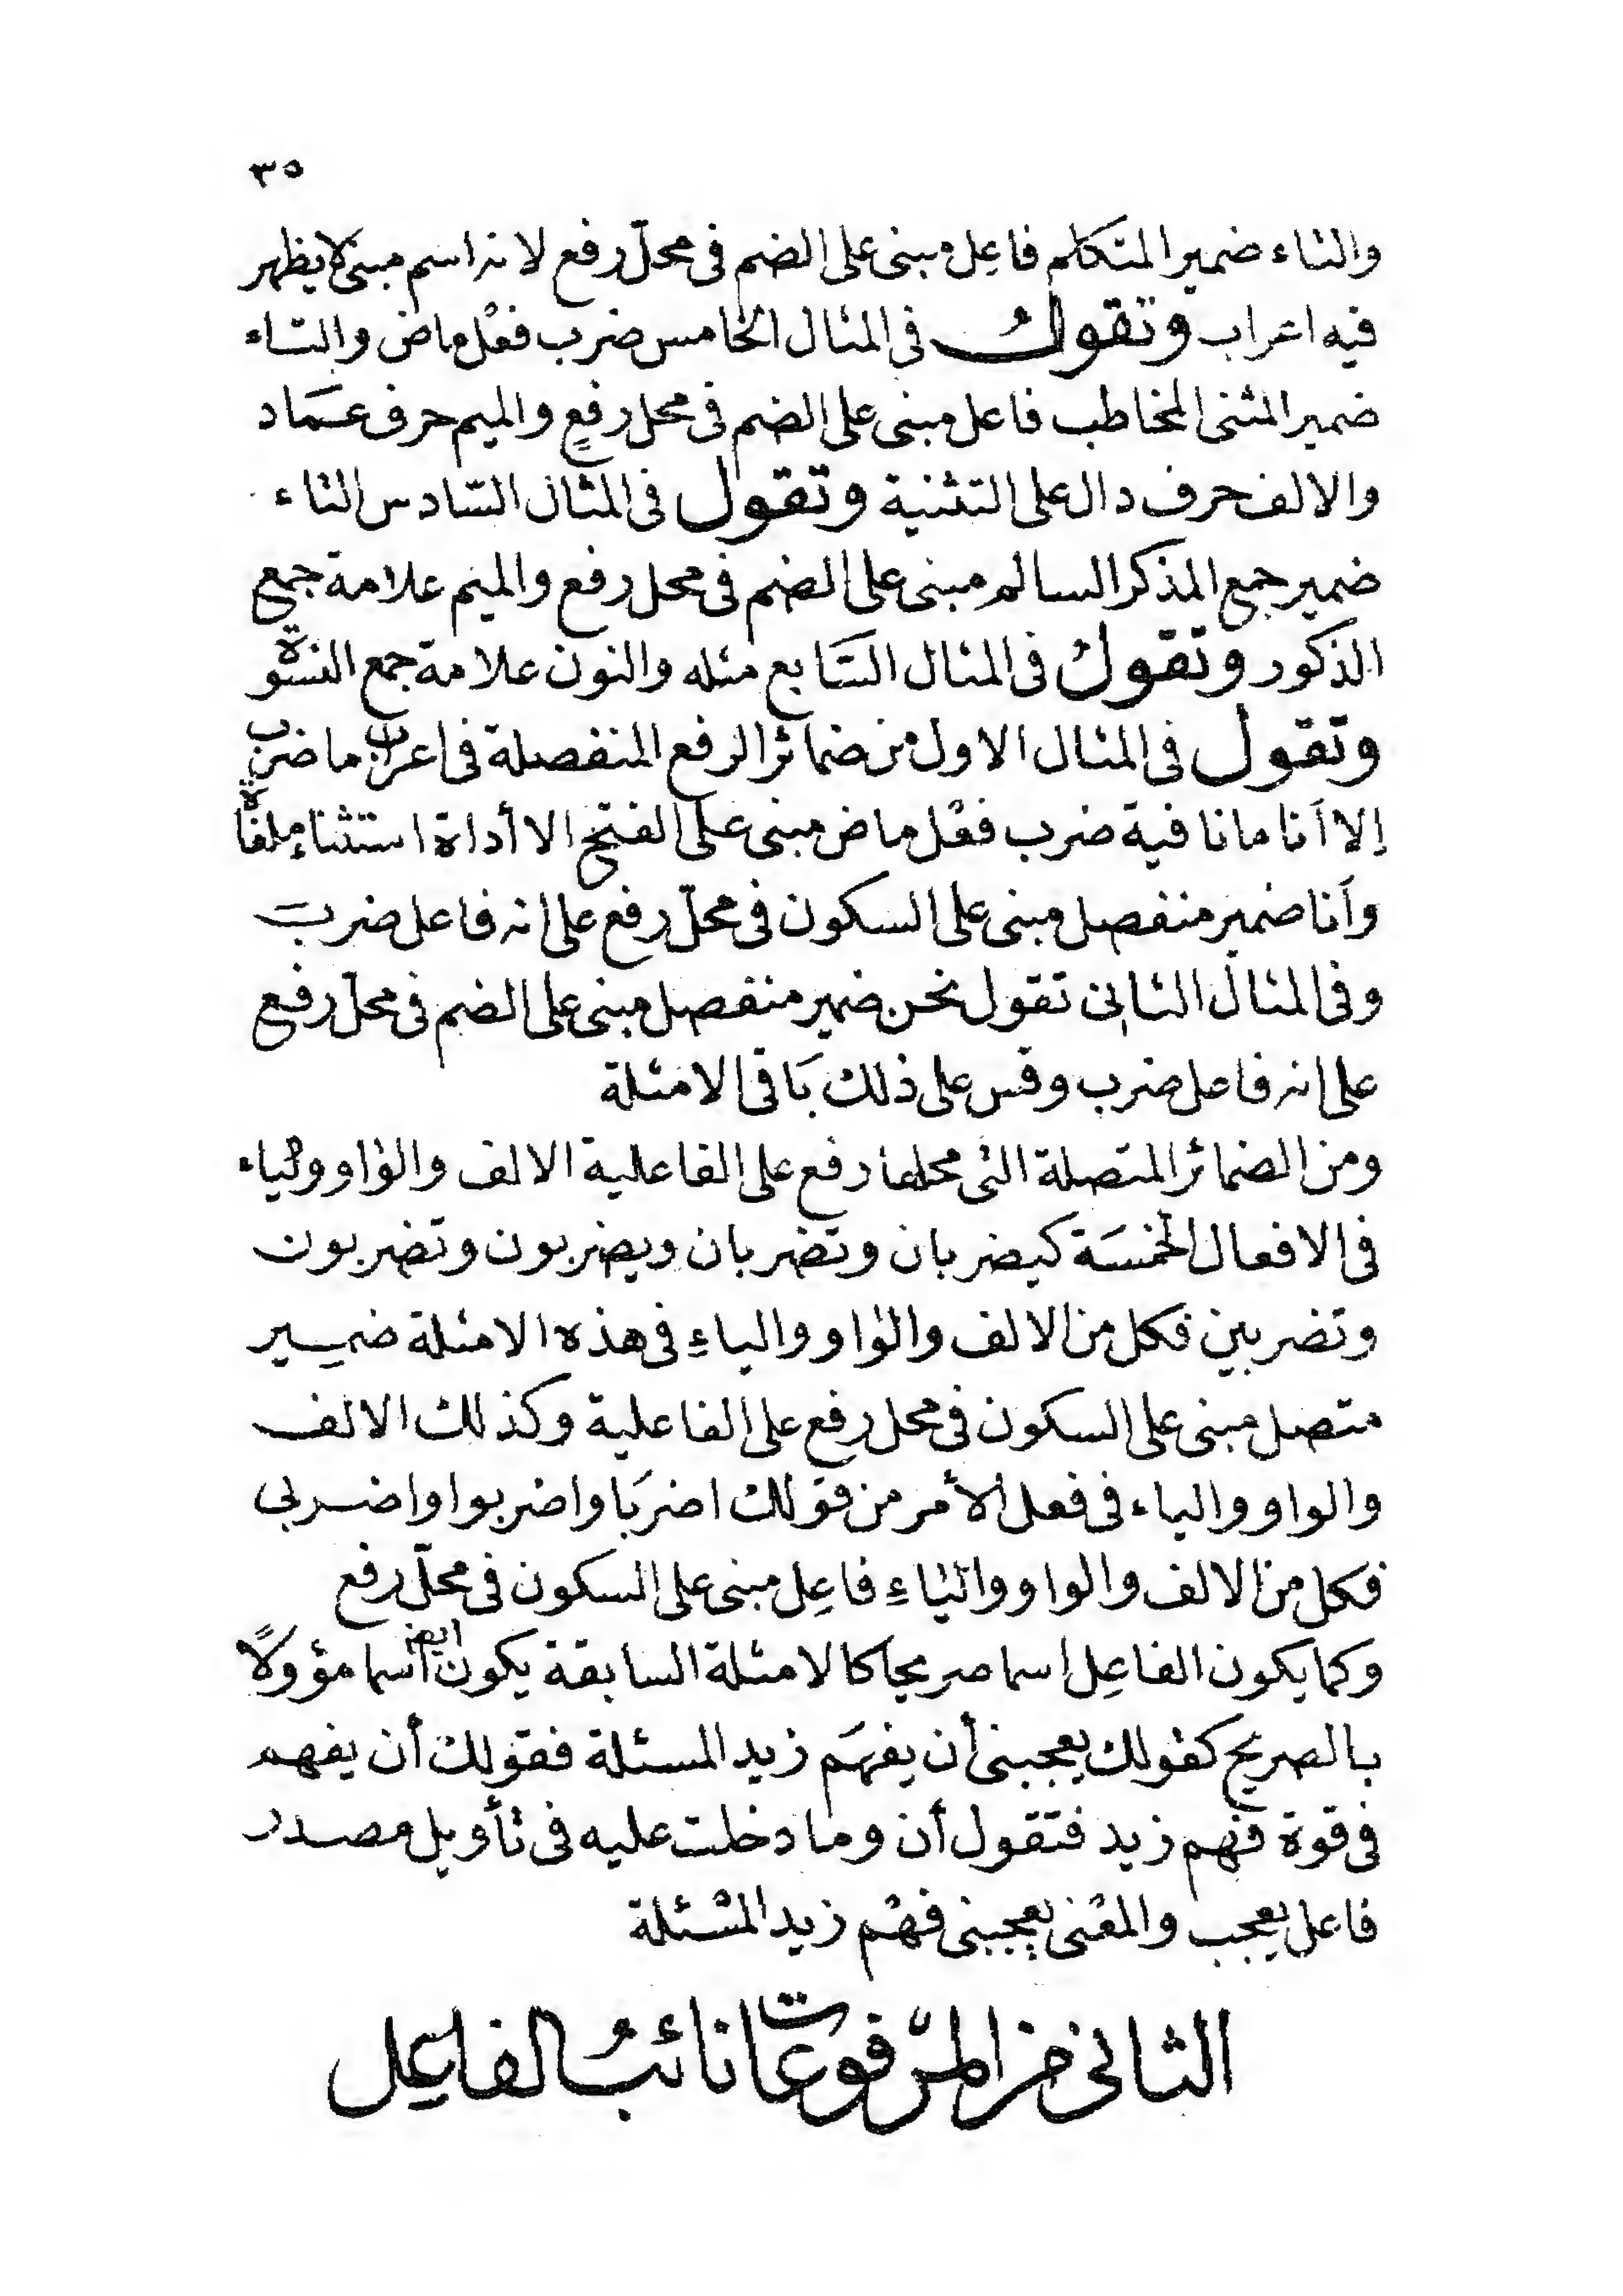 ٣٥
والتاء ضمير المتكلم فاعِل مبنى على الضم فى محلّ رفع لانه اسم مبنى لا يظهر
فيه اعراب وتقولُ فى المثال الخامس ضرب فعْل ماض والتاء
ضمير المثنى المخاطب فاعل مبنى على الضم فى محل رفعٍ والميم حرف عمَاد
والالف حرف دال على التثنية وتقول فى المثال السّادس التاء
ضمير جمع المذكر السالم مبنى على الضم فى محل رفع والميم علامة جمع
الذكور وتقولُ فى المثال السَّابع مثله والنون علامة جمع النسْوة
وتقول فى المثال الاول من ضمائر الرفع المنفصلة فى اعراب ما ضرب
إلا اَنا ما نافية ضرب فعْل ماض مبنى على الفتح الا أداة استثناءٍ ملغاة
واَنا ضمير منفصل مبنى على السكون فى محلّ رفع على انه فاعل ضرب
وفى المثال الثانى تقول نحن ضمير منفصل مبنى على الضم فى محلّ رفع
على انه فاعل ضرب وقس على ذلك بَاقى الامثلة
ومن الضمائر المتصلة التى محلها رفع على الفاعلية الالف والواو والياء
فى الافعال الخمسَة كيضربان وتضربان ويضربون وتضربون
وتضربين فكل من الالف والواو والياءِ فى هذه الامثلة ضمِير
متصل مبنى على السكون فى محل رفع على الفاعلية وكذلك الالف
والواو والياء فى فعل الأمر من قولك اضربَا واضربوا واضربى
فكل من الالف والواو والياءِ فاعِل مبنى على السكون فى محلّ رفع
وكما يكون الفاعِل اسما صريحا كالامثلة السابقة يكون ايضا اسما مؤولًا
بالصريح كقولك يعجبنى أن يفهَم زيد المسئلة فقولك أن يفهم
فى قوة فهم زيد فتقول أن وما دخلت عليه فى تأويل مصدر
فاعل يعجب والمعْنى يعجبنى فهْم زيد المسْئلة
الثانى من المرْفوعات نائبُ الفاعِل